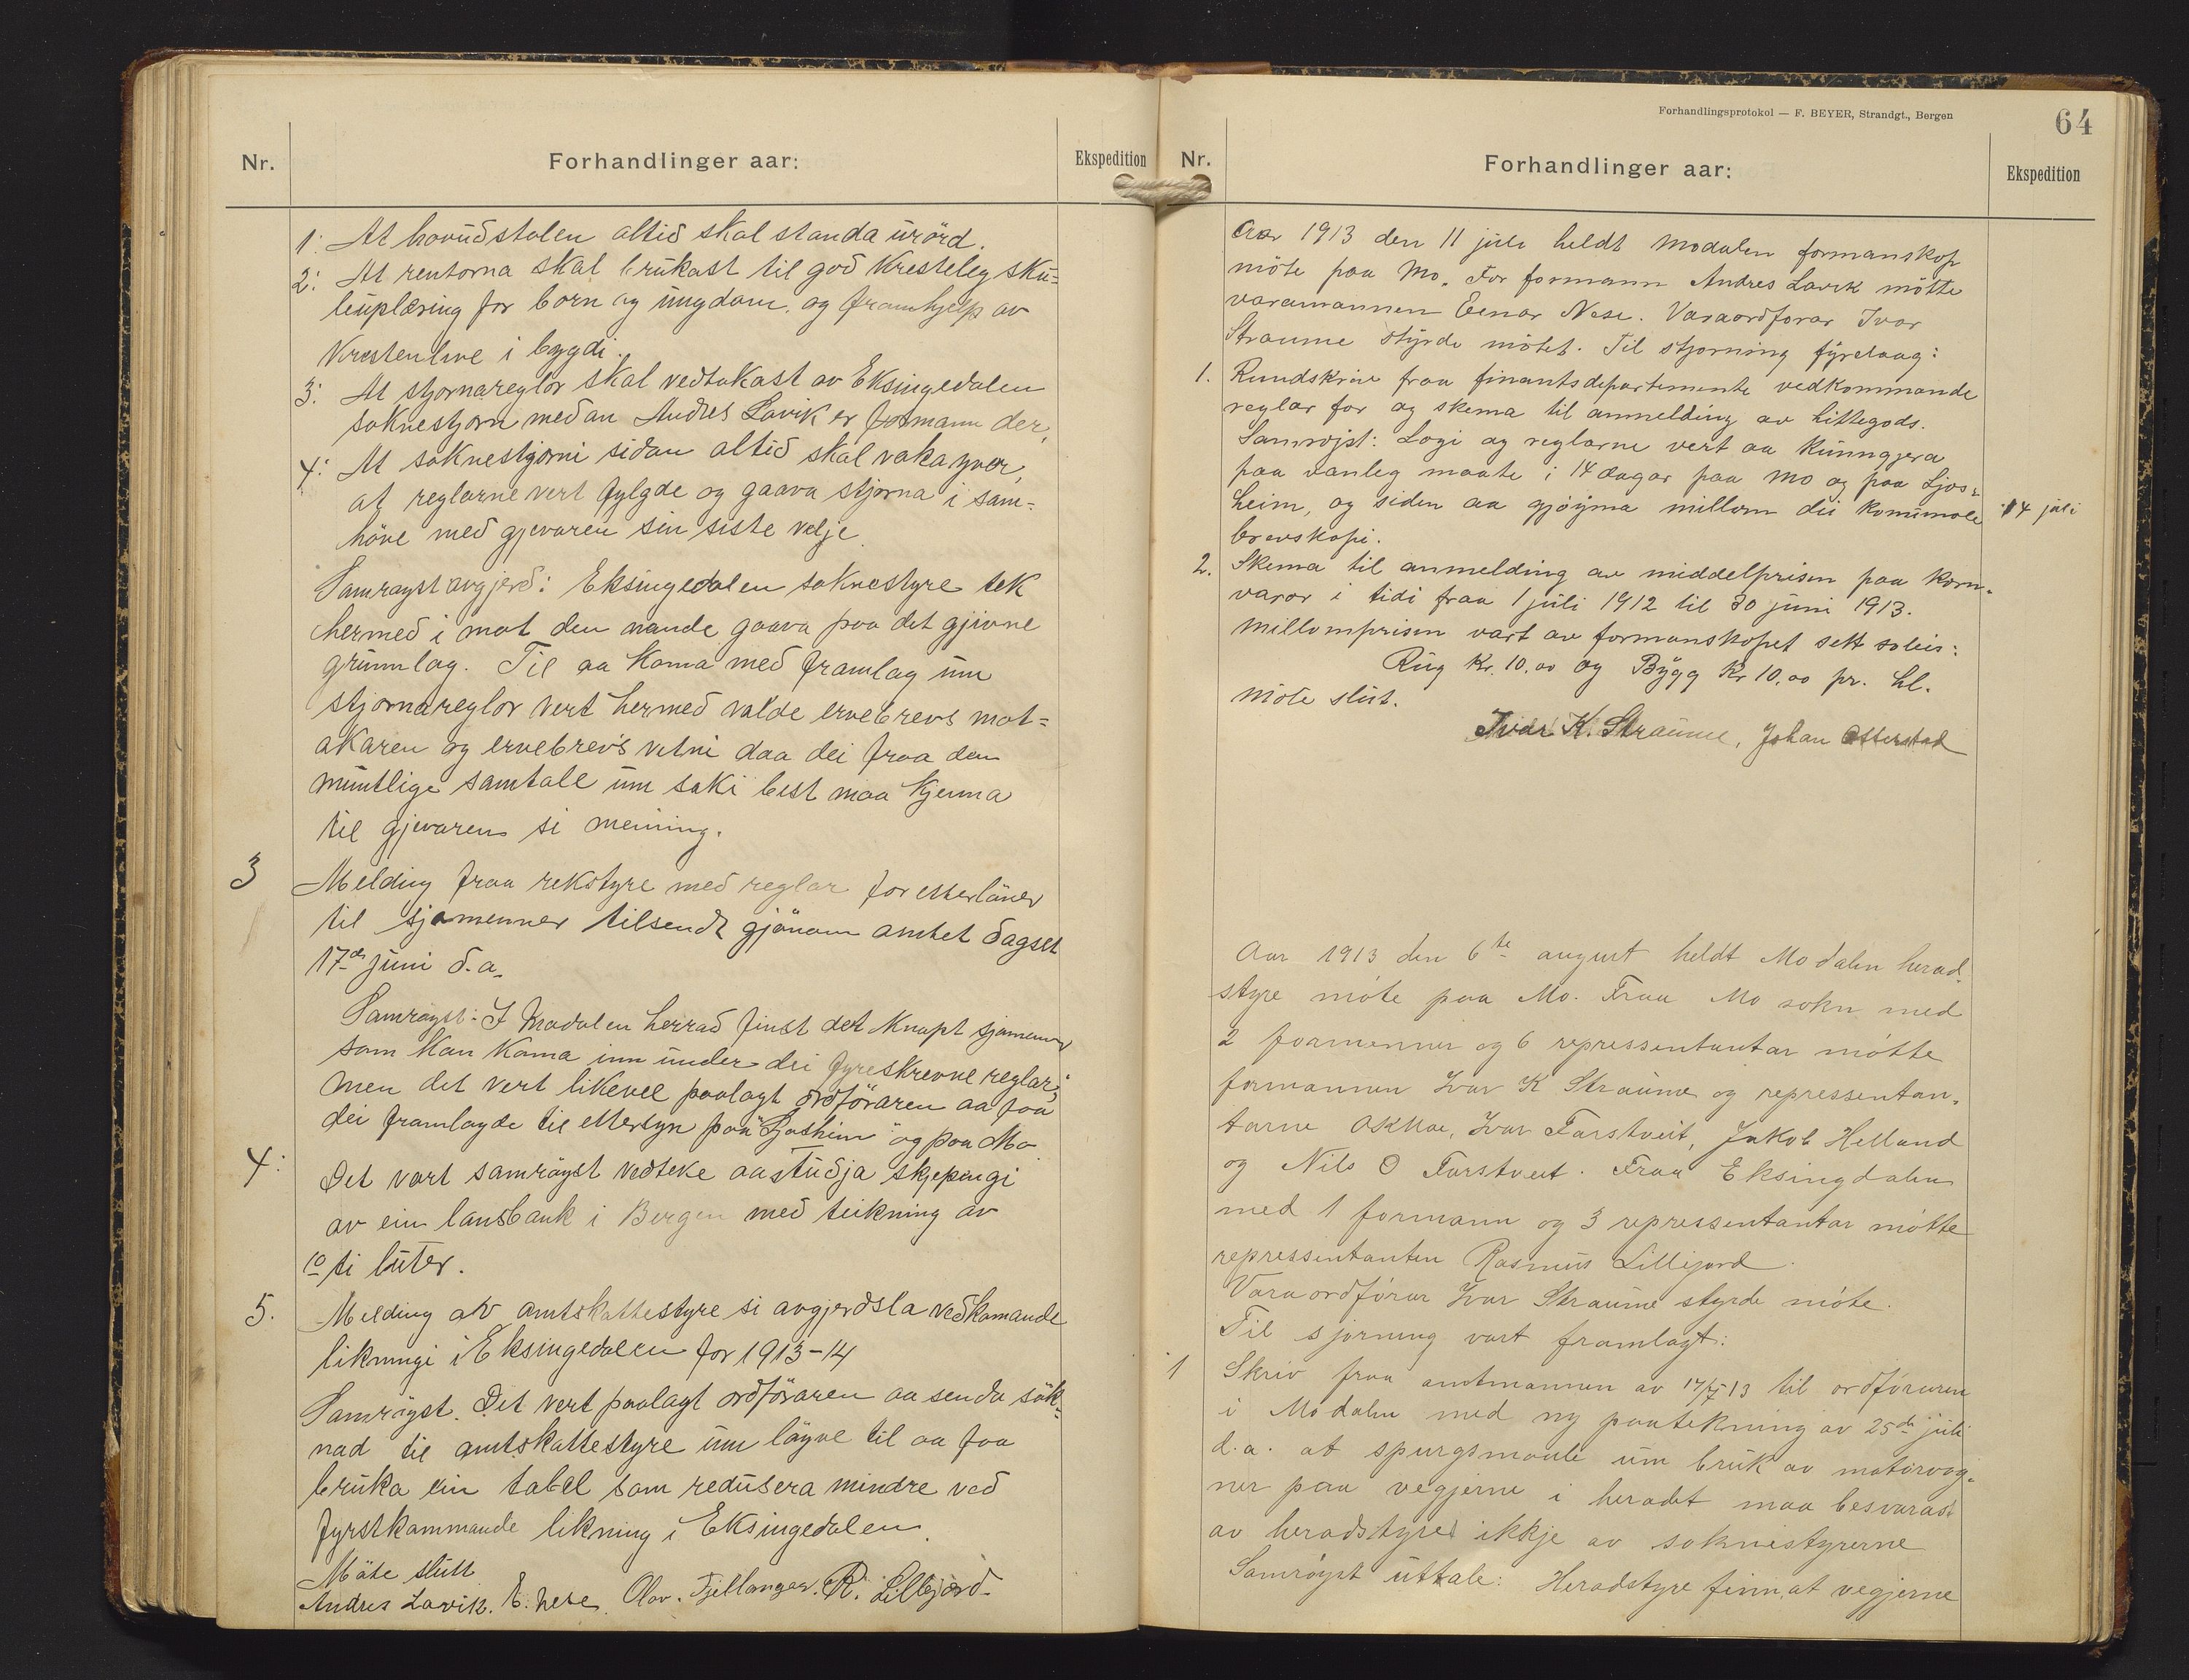 Nr.
Forhandlinger aar:
Ekspedition
1: At hovudstolen altid skal standa urörd.
2: At rentorna skal brukast til god kresteleg sku=
leuplæring for born og ungdom, og framhjelp av
kristenlive i bygdi.
3: At stjornareglor skal vedtakast av Eksingedalen
soknestjorn medan Andres Lavik er formann der,
4: At soknestjorni sidan altid skal vaka yver,
at reglarne vert fylgde og gaava stjorna i sam=
höve med gjevaren sin siste velje.
Samrøystavgjerd: Eksingedalen soknestyre tek
hermed i mot den nande gaava paa det gjivne
grunnlag. Til aa koma med framlag um
stjornareglor vert hermed valde ervebrevs mot=
akaren og ervebrevs vetni daa dei fraa den
muntlige samtale um saki best maa kjenna
til gjevarens si meining.
3 Melding fraa rekstyre med reglar for etterlöner
til sjomenner tilsendt gjönom amtet dagset
17de juni d.a.
Samröyst: I Modalen herrad finst det knapt sjomenner
som kan koma inn under dei fyreskrevne reglar;
men det vert likevel paalagt ordföraren aa faa
dei framlagde til ettersyn paa "Ljosheim" og paa Mo
4: Det vart samröyst vedteke aa studja skjepingi
av ein lansbank i Bergen med teikning av
10 ti luter.
5. Melding av amtskattestyre si avgjerdsla vedkomande
likningi i Eksingedalen for 1913-14
Samröyst. Det vert paalagt ordföraren aa senda sök=
nad til amtskattestyre um löyve til aa faa
bruka ein tabel som redusera mindre ved
fyrstkommande likning i Eksingedalen.
Möte slutt
Andres Lavik. E. Nese. Olav. Fjellanger. R. Lillejord.
Forhandlingsprotokol — F. BEYER, Strandgt., Bergen
64
Nr.
Forhandlinger aar:
Ekspedition
Aar 1913 den 11 juli heldt Modalen formanskap
möte paa Mo. For formann Andres Lavik mötte
varamannen Einar Nese. Varaordforar Ivar
Straume styrde mötet. Til stjorning fyrelaag:
1. Rundskriv fraa finantsdepartemente vedkommande
reglar for og skema til anmelding av hittegods.
Samröjst: Logi og reglarne vert aa kunngjera
paa vanleg maate i 14 dagar paa Mo og paa Ljos=
heim, og siden aa gjöyma millom dei komunale
brevskapi.
14 juli
2. Skema til anmelding av middelprisen paa korn-
varor i tidi fraa 1 juli 1912 til 30 juni 1913.
Millomprisen vart av formanskapet sett soleis:
Rug Kr. 10.00 og Bygg Kr 10.00 pr. hl.
Möte slut.
Ivar K. Straume, Johan Otterstad
Aar 1913 den 6te august heldt Modalen herad
styre möte paa Mo. Fraa Mo sokn med
2 formenner og 6 repressentantar mötte
formannen Ivar K Straume og repressentan-
tarne O K Moe, Ivar Farstveit, Jakob Helland
og Nils O Farstveit. Fraa Eksingdalen
med 1 formann og 3 repressentantar mötte
repressentanten Rasmus Lillejord.
Varaordförar Ivar Straume styrde möte.
Til sjorning vart framlagt:
1 Skriv fraa amtmannen av 17/5 13 til ordföraren
i Modalen med ny paatekning av 25de juli
d.a. at spurgsmaale um bruk av motorvog-
ner paa vegjerne i heradet maa besvarast
av heradstyret ikkje av soknestyrerne
Samröyst uttale: Heradstyre finn, at vegjerne